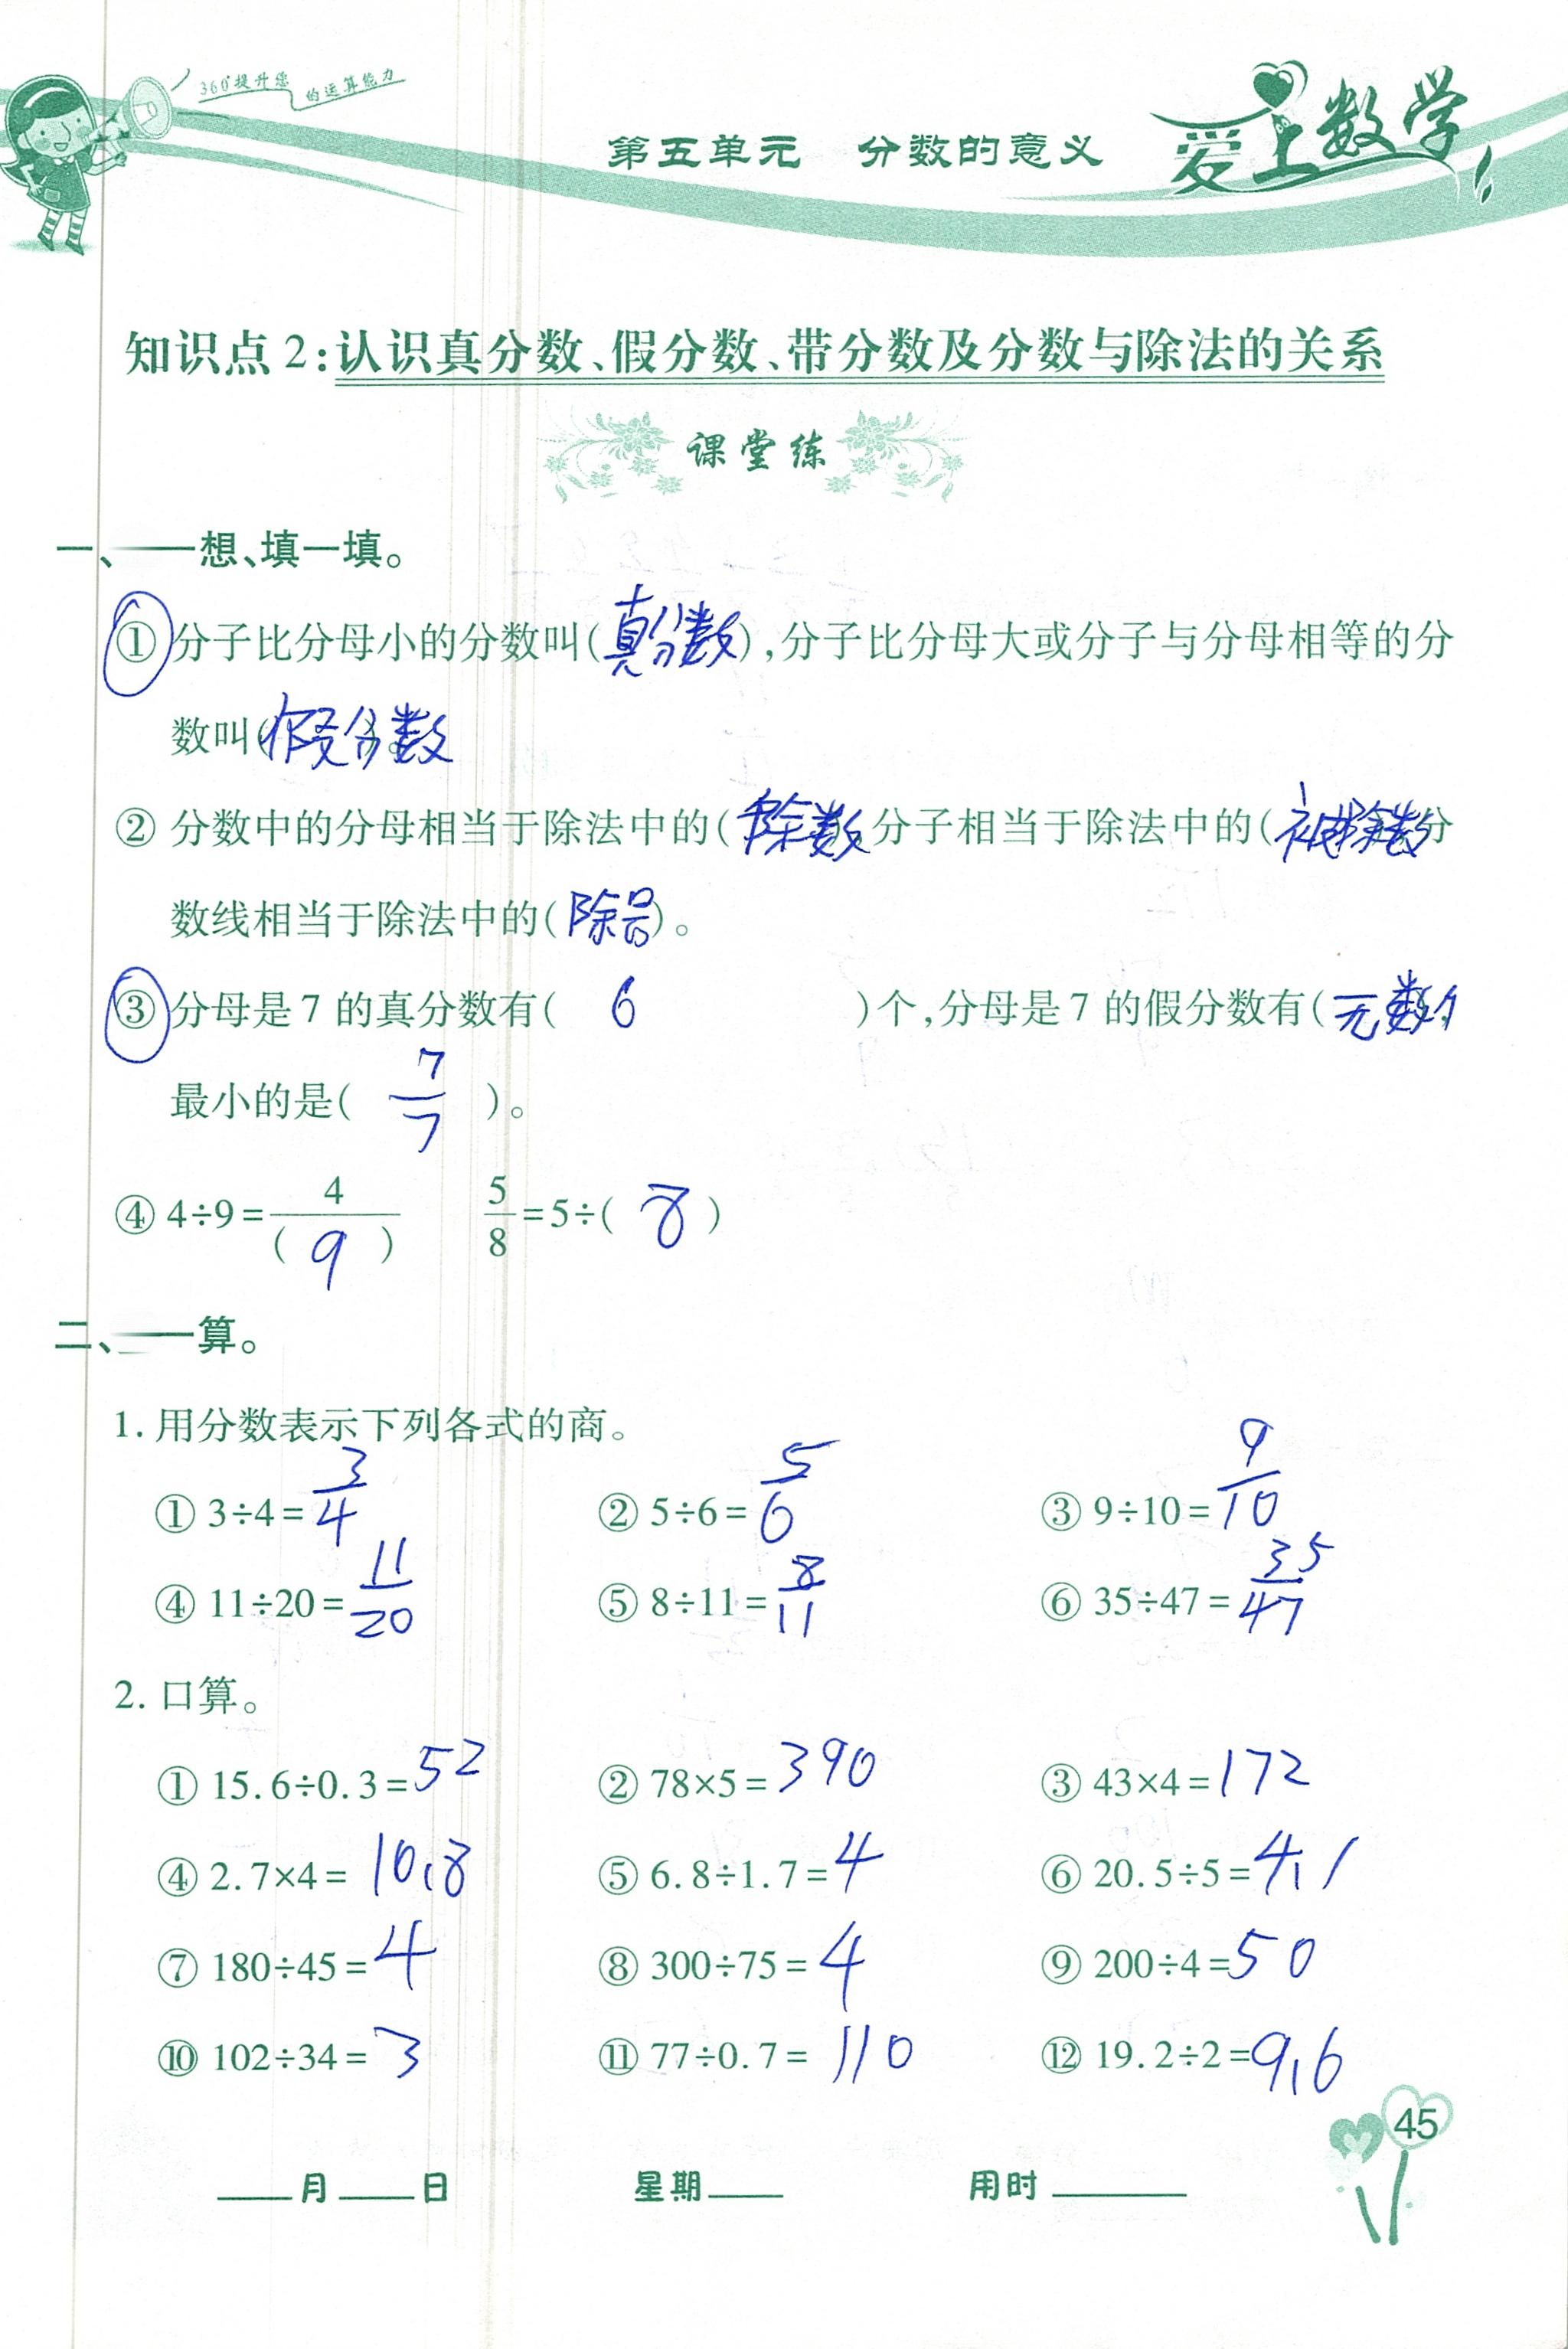 360°提升您的运算能力
第五单元 分数的意义 爱上数学
知识点2:认识真分数、假分数、带分数及分数与除法的关系
课堂练
一、——想、填一填。
① 分子比分母小的分数叫(真分数),分子比分母大或分子与分母相等的分
数叫(假分数)。
② 分数中的分母相当于除法中的(除数),分子相当于除法中的(被除数),分
数线相当于除法中的(除号)。
③ 分母是7的真分数有( 6 )个,分母是7的假分数有(无数个),
最小的是( 7/7 )。
④ 4÷9=4/( 9 ) 5/8=5÷( 8 )
二、——算。
1. 用分数表示下列各式的商。
① 3÷4=3/4 ② 5÷6=5/6 ③ 9÷10=9/10
④ 11÷20=11/20 ⑤ 8÷11=8/11 ⑥ 35÷47=35/47
2. 口算。
① 15.6÷0.3=52 ② 78×5=390 ③ 43×4=172
④ 2.7×4=10.8 ⑤ 6.8÷1.7=4 ⑥ 20.5÷5=4.1
⑦ 180÷45=4 ⑧ 300÷75=4 ⑨ 200÷4=50
⑩ 102÷34=3 ⑪ 77÷0.7=110 ⑫ 19.2÷2=9.6
45
____月____日 星期____ 用时____